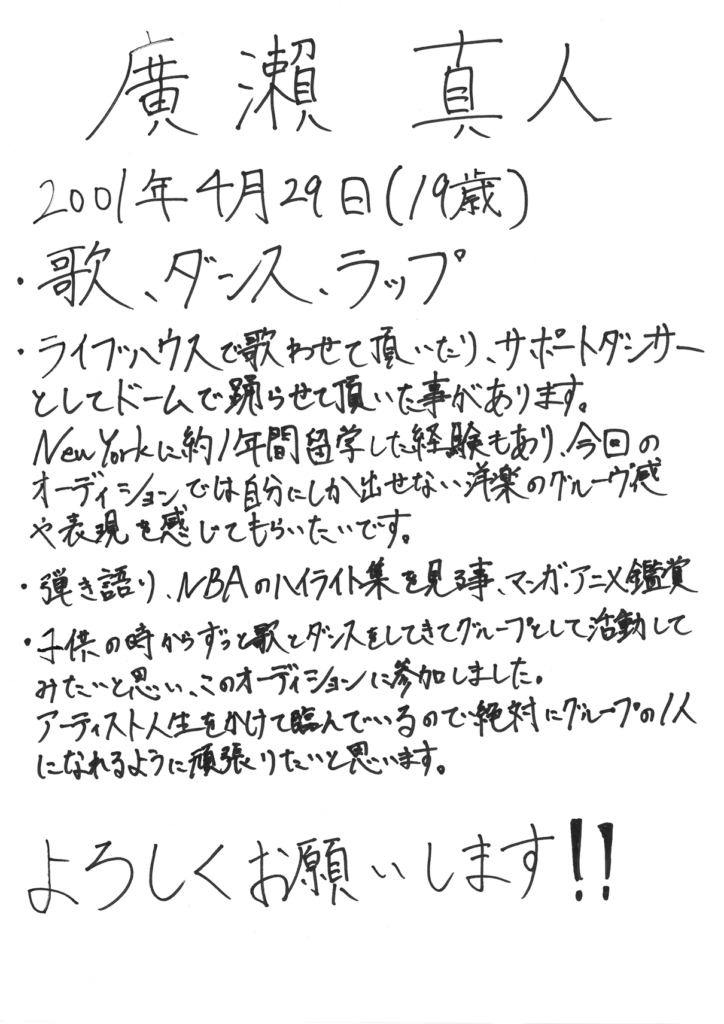 廣瀬 真人
2001年4月29日(19歳)
・歌、ダンス、ラップ
・ライブハウスで歌わせて頂いたり、サポートダンサー
としてドームで踊らせて頂いた事があります。
New Yorkに約1年間留学した経験もあり、今回の
オーディションでは自分にしか出せない洋楽のグルーヴ感
や表現を感じてもらいたいです。
・弾き語り、NBAのハイライト集を見る事、マンガ・アニメ鑑賞
・子供の時からずっと歌とダンスをしてきてグループとして活動して
みたいと思い、このオーディションに参加しました。
アーティスト人生をかけて臨んでいるので絶対にグループの1人
になれるように頑張りたいと思います。
よろしくお願いします!!